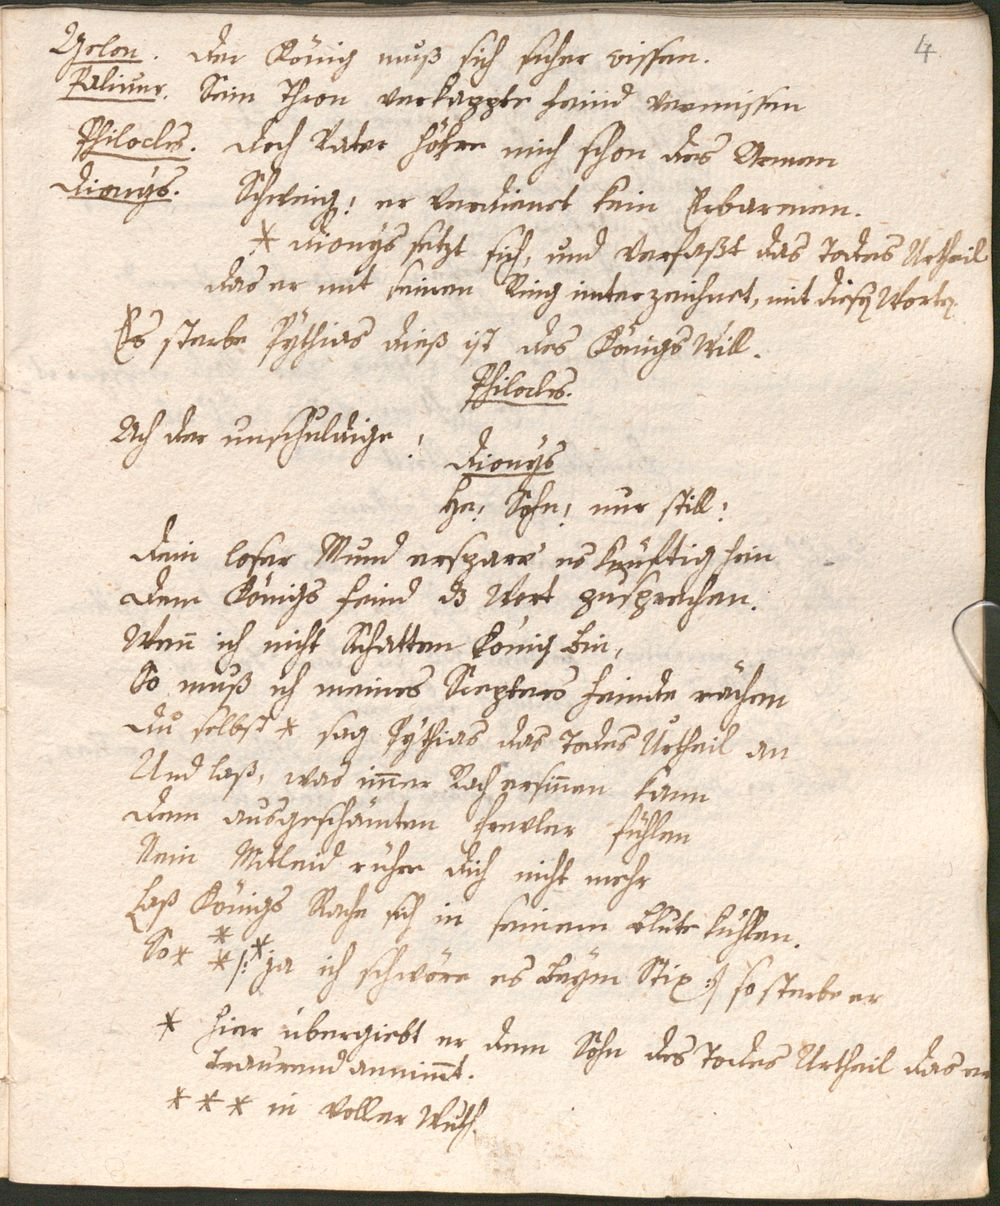 4
Gelon. Der König muß sich sicher wissen.
Palinur. Sein Thron verkappte Feind vermissen
Philocles. Doch Vater höhre mich schon des Armen
Dionÿs. Schweig! er verdienet kein Erbarmen.
* Dionÿs setzt sich, und verfaßt das Todes Urtheil
das er mit seinen Ring unterzeichnet, mit diesen Worten
Es sterbe Pÿthias dieß ist des Königs Will.
Philocles.
Ach der unschuldige!
Dionÿs
He! Sohn! nur still!
Dein loser Mund erspare es künftig hin
Dem Königs Feind das Wort zusprechen.
Wenn ich nicht Schatten König bin,
So muß ich meines Scepters Feinde rächen
Du selbst * sag Pÿthias das Todes Urtheil an
Und laß, was immer Rach ersinnen kann
Dem ausgeschämten Frevler fühlen
Kein Mitleid rühre dich nicht mehr
Laß Königs Rache sich in seinem Blute kühlen.
So * * * * /: ja ich schwöre es beÿm Stix :/ so sterbe er
* Hier übergiebt er dem Sohn des Todes Urtheil das er
traurend annimmt.
* * * in voller Wuth.